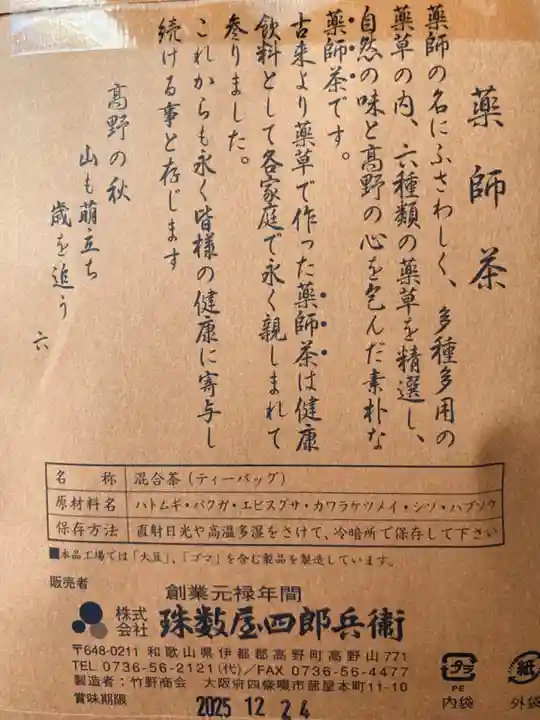 薬師茶
薬師の名にふさわしく、多種多用の
薬草の内、六種類の薬草を精選し、
自然の味と高野の心を包んだ素朴な
薬師茶です。
古来より薬草で作った薬師茶は健康
飲料として各家庭で永く親しまれて
参りました。
これからも永く皆様の健康に寄与し
続ける事と存じます
高野の秋
山も萌立ち
歳を追う
六
名称 混合茶(ティーバッグ)
原材料名 ハトムギ・バクガ・エビスグサ・カワラケツメイ・シソ・ハブソウ
保存方法 直射日光や高温多湿をさけて、冷暗所で保存して下さい
■本品工場では「大豆」、「ゴマ」を含む製品を製造しています。
販売者
創業元禄年間
株式会社 珠数屋四郎兵衛
〒648-0211 和歌山県伊都郡高野町高野山771
TEL 0736-56-2121(代)/FAX 0736-56-4477
製造者:竹野商会 大阪府四條畷市蔀屋本町11-10
賞味期限 2025 12 24
プラ
PE
内袋
紙
外袋